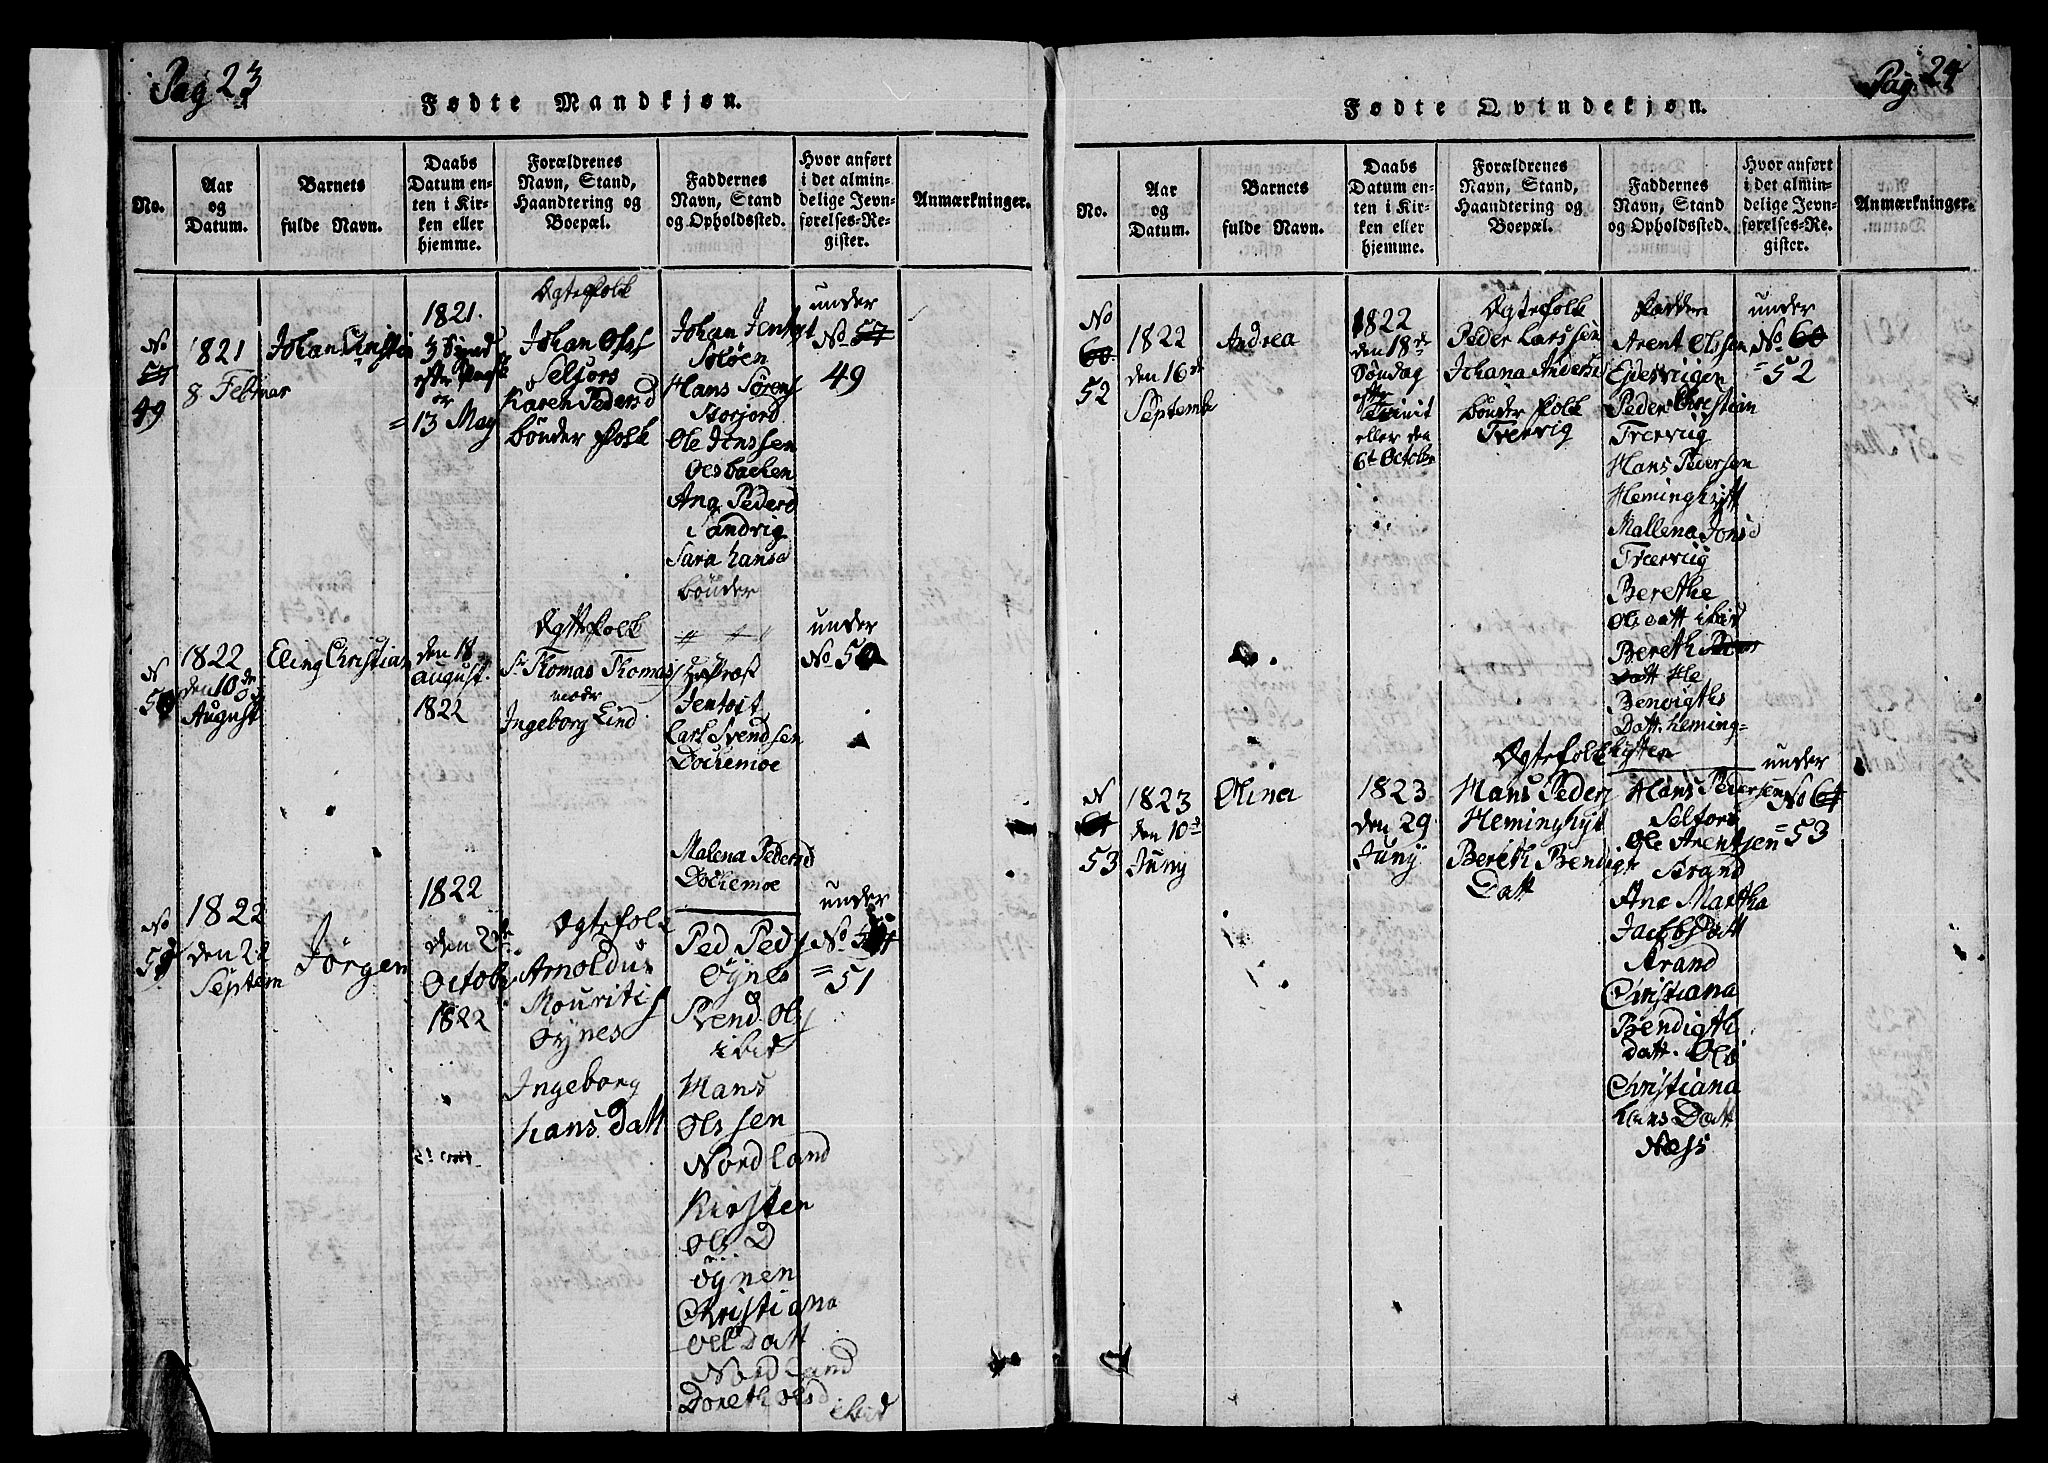 Pag 23
Fødte Mandkjøn.
No.
Aar
og
Datum.
Barnets
fulde Navn.
Daabs
Datum en-
ten i Kir-
ken eller
hjemme.
Forældrenes
Navn, Stand,
Haandtering og
Boepæl.
Faddernes
Navn, Stand
og Opholdssted.
Hvor anført
i det almin-
delige Jevn-
førelses-Re-
gister.
Anmærkninger.
No
49
1821
8 Februar
Johan
1821.
3 Synd
efter
13 May
Ægtefolk
Johan Ols
Selfors
Karen Pedersd
bønder folk
Johan Jentoft
Soløen
Hans Sørens
Storjord
Ole Jenssen
Oesbacken
Ana Pedersd
Sandvig
Sara hansd
bønder
under
No 57
49
N
50
1822
den 10de
August
Eling Christian
den 18
August.
1822
Ægtefolk
Sr. Thomas Thomas
moder
Ingeborg Lind
Jentoft
Carl Svendsen
Dochemoe
Malena Pedersd
Dochemoe
under
No 50
No
51
1822
den 22
Septem
Jørgen
1822
den 2de
Octob
1822
Ægtefolk
Arnoldus
Mouritis
Øynes
Ingeborg
hans Datt
Ped Peds
Øynes
Svend Ols
ibid
Hans
Olssen
Nordland
Kirsten
Ols D
Øynen
Christiana
Oel Datt
Nordland
Doreth Olsd
ibid
under
No
= 51
Pag: 24
Fødte Qvindekjøn.
No.
Aar
og
Datum.
Barnets
fulde Navn.
Daabs
Datum en-
ten i Kir-
ken eller
hjemme.
Forældrenes
Navn, Stand,
Haandtering og
Boepæl.
Faddernes
Navn, Stand
og Opholdssted.
Hvor anført
i det almin-
delige Jevn-
førelses-Re-
gister.
Anmærkninger.
No
60
52
1822
den 16de
Septembr
Andrea
1822
den 18de
Søndag
efter
Trinit
eller den
6te October
Ægtefolk
Peder Larssen
Johana Anders
bønder folk
Trervig
Faddere
Arent Olssen
Eidesvigen
Peder Christian
Trervig
Hans Pedersen
Heminghytt
Mallena Jonsd
Trærvig
Berethe
Ols datt ibid
Bereth
Datt He
Benvigths
Datt. heming-
hytten
under
No 60
= 52
N
53
1823
den 10de
Juny
Olina
1823
den 29
Juny
Ægtefolk
Hans Peders
Heminghyt
Bereth Bendigt
Datt
Hans Pedersen
Selfors
Ole Arentsen
Strand
Ana Martha
Jacobs Datt
Strand
Christiana
Bendigth
datt. Ols
Christiana
Lars Datt
Næss
under
No 64
= 53